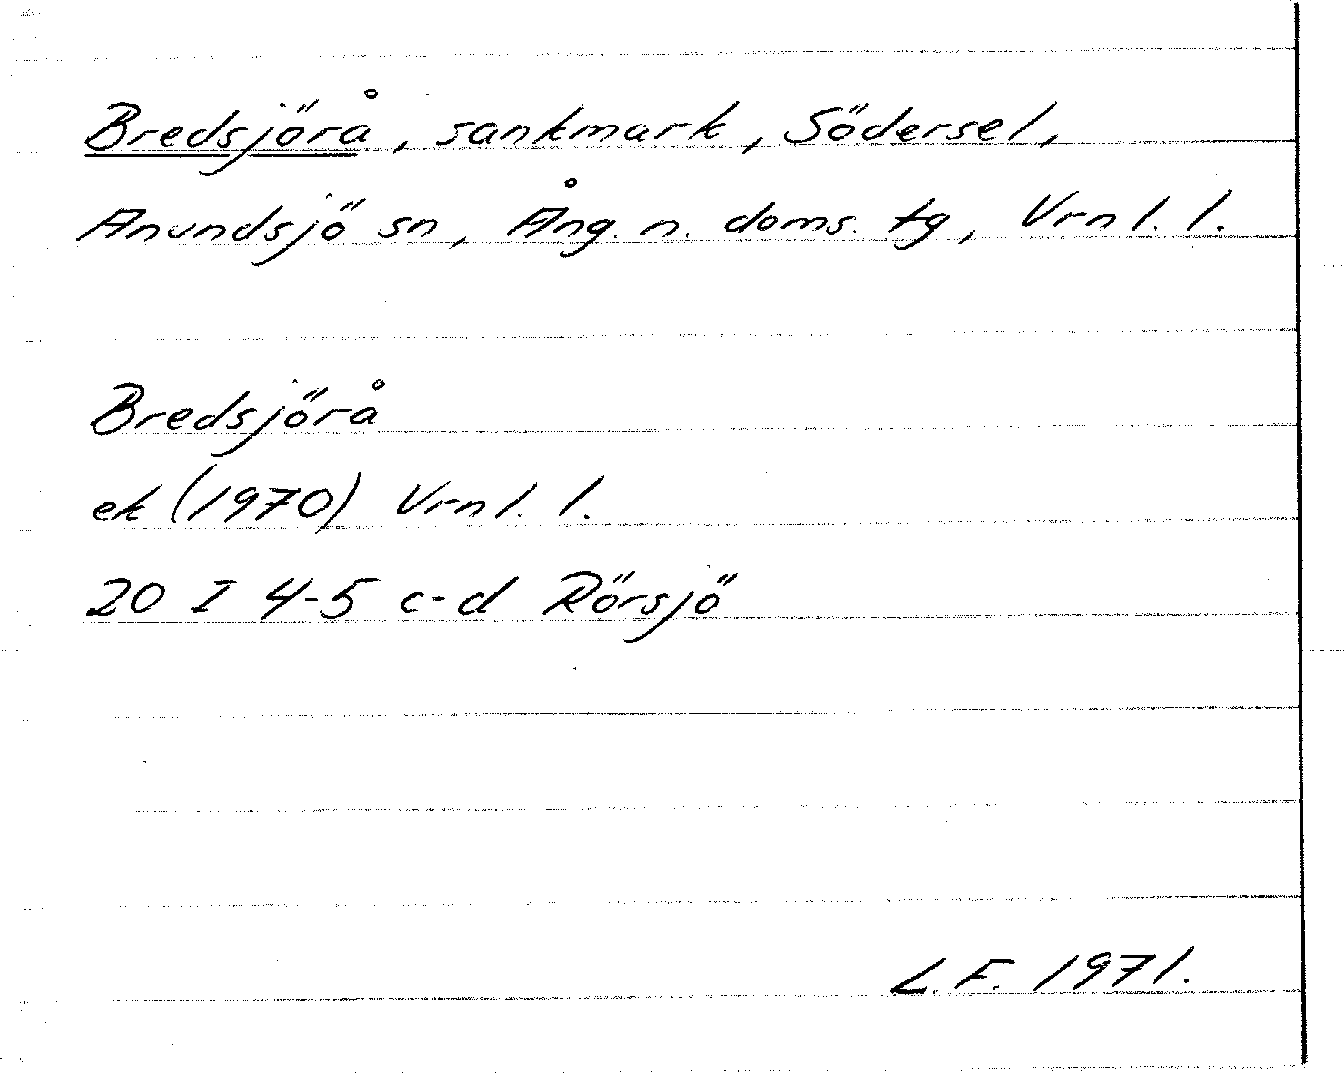 Bredsjörå, sankmark, Södersel,
Anundsjö sn, Ång. n. doms. tg, Vrnl. l.
Bredsjörå
ek (1970) Vrnl. l.
20 I 4-5 c-d Rörsjö
L.F. 1971.